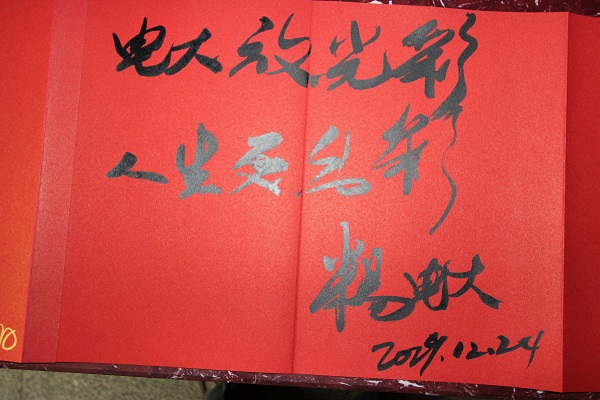 电大放光彩
人生更出彩
杨电大
12.24